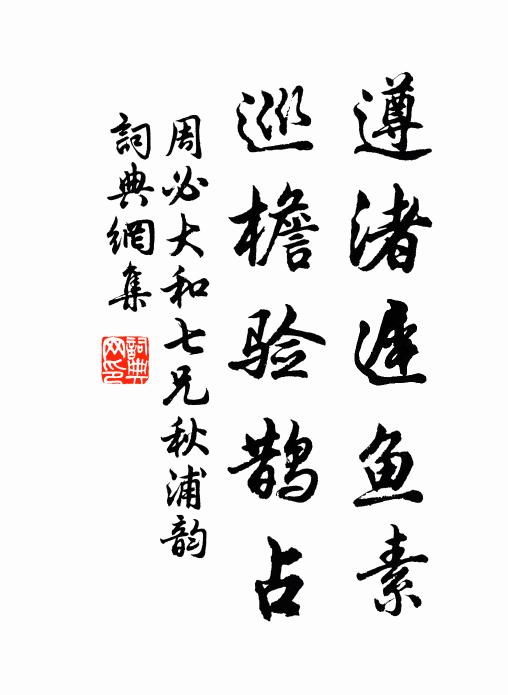 遵渚遲鱼素
巡檐验鹊占
周必大和七兄秋浦韵
詞典網集
詞典网印